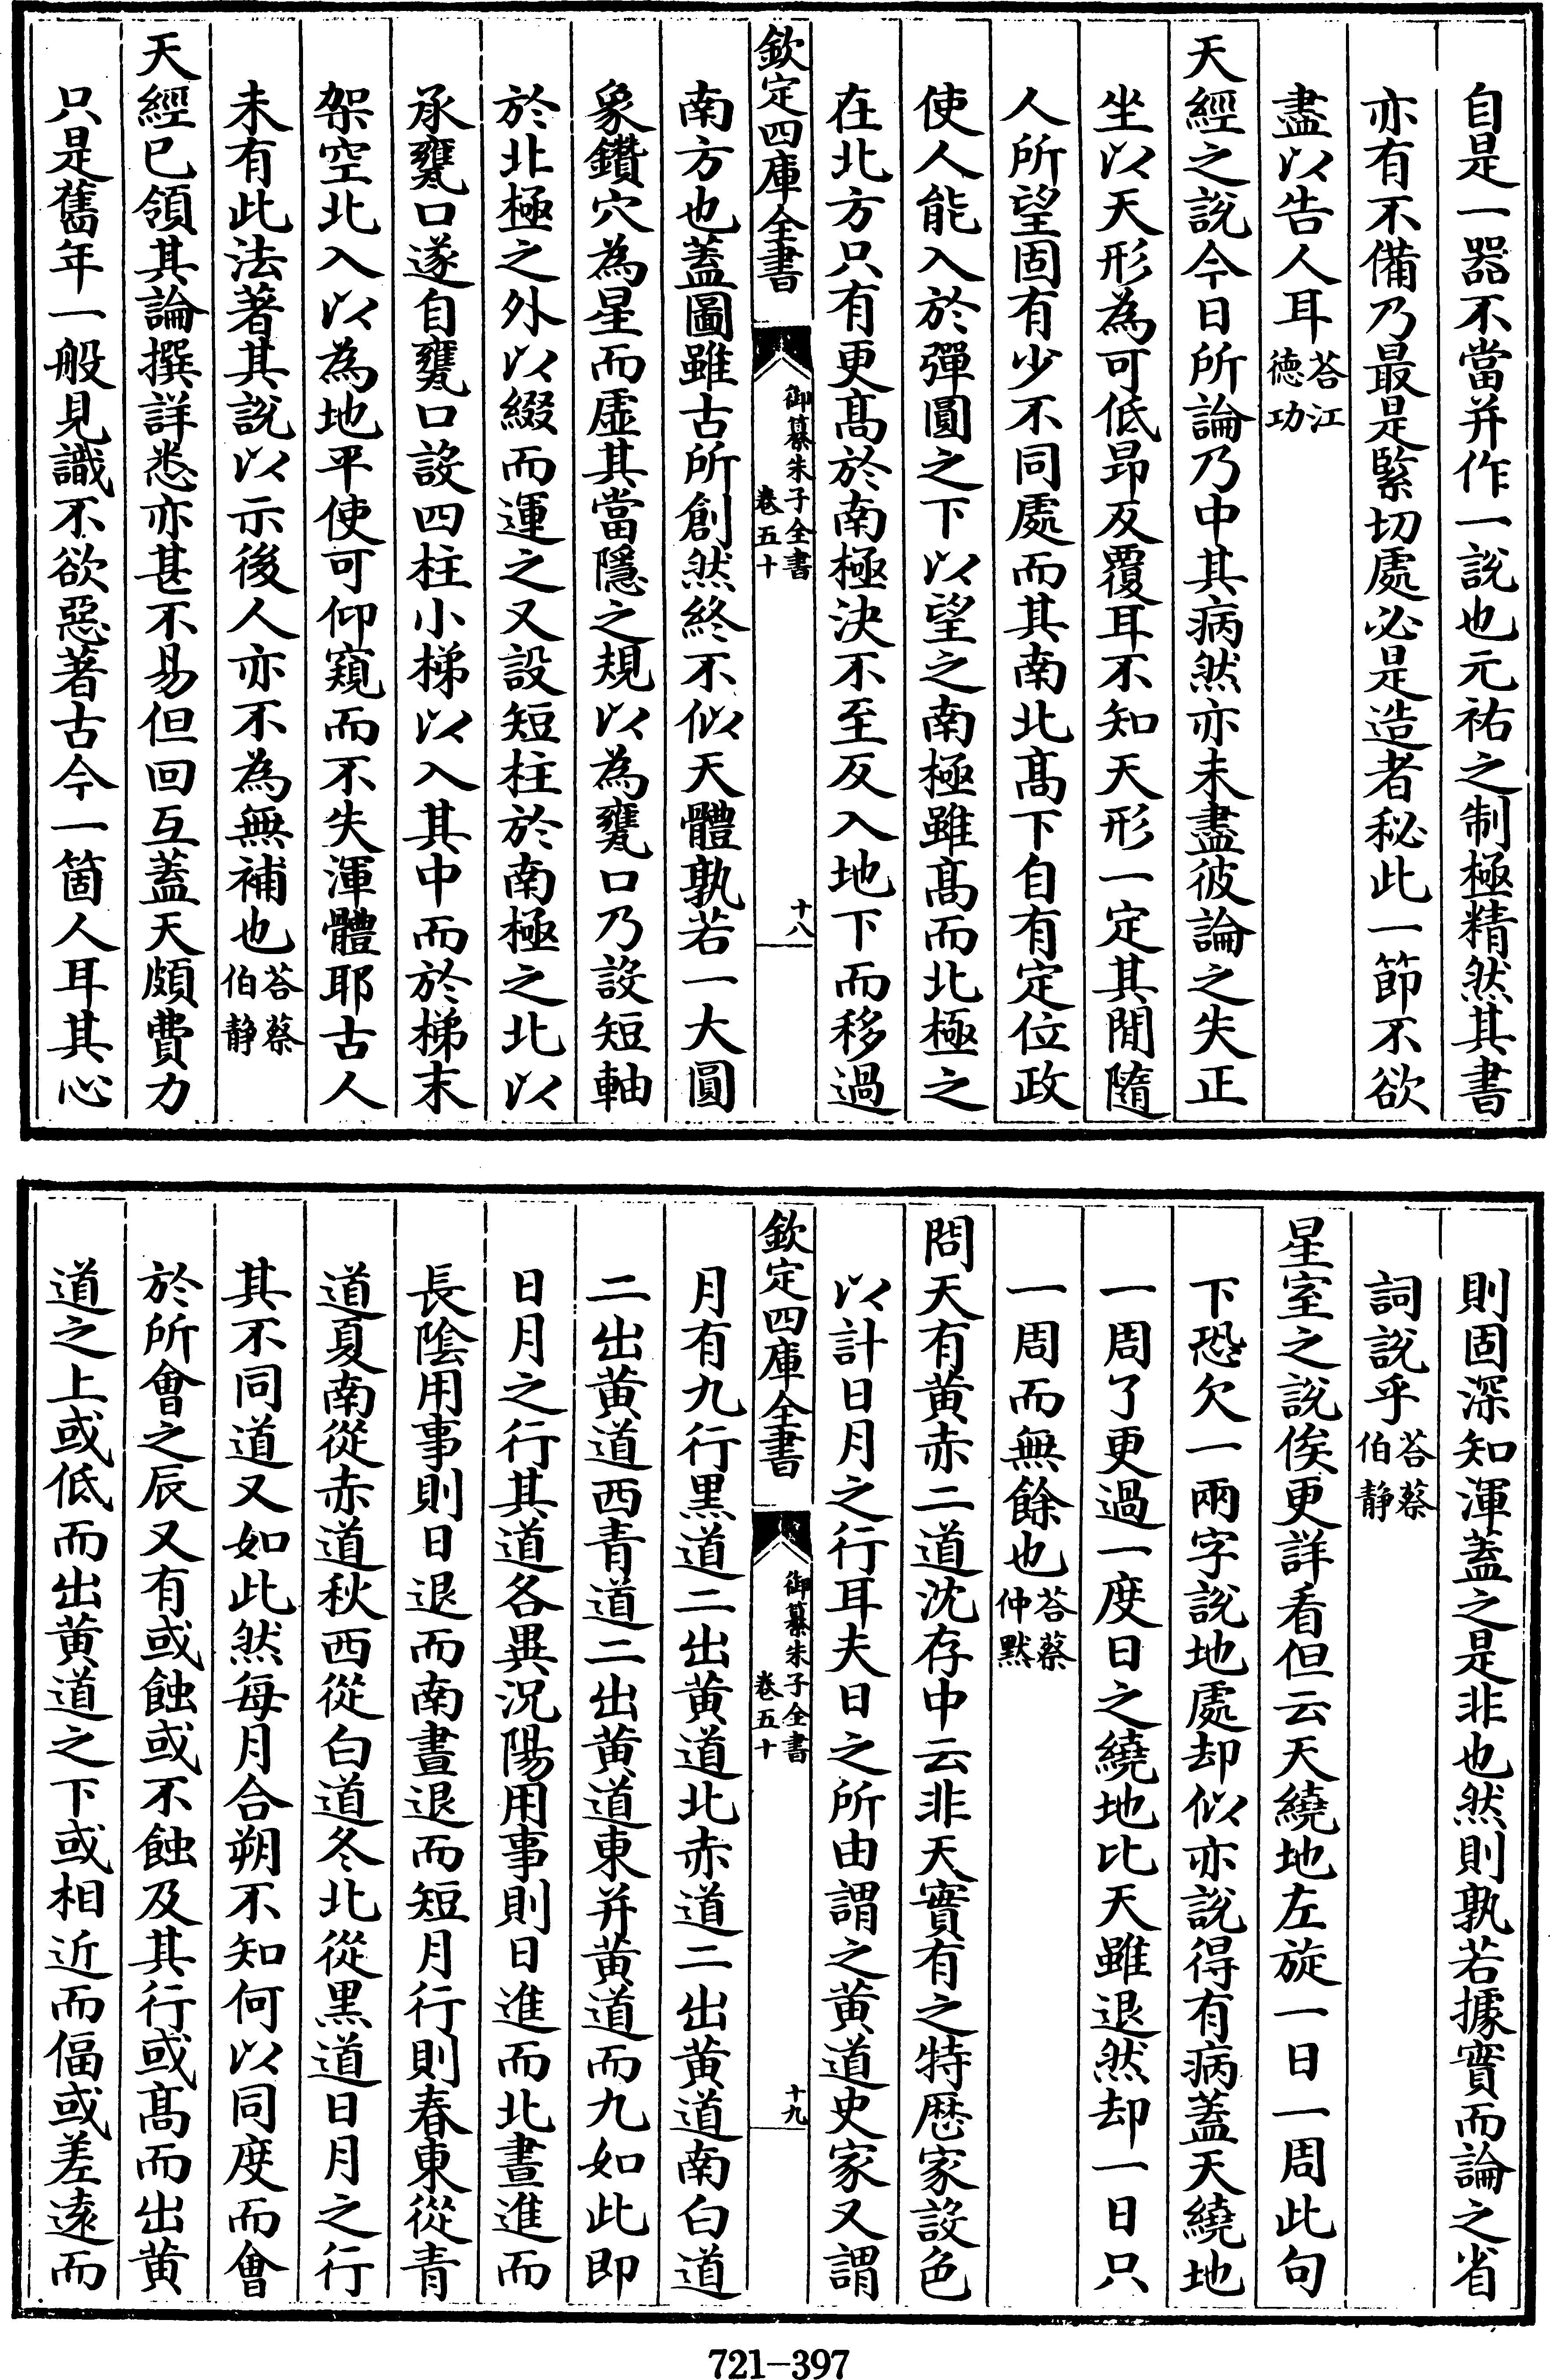 自是一器不當并作一說也元祐之制極精然其書
亦有不備乃最是緊切處必是造者秘此一節不欲
盡以告人耳答江德功
天經之說今日所論乃中其病然亦未盡彼論之失正
坐以天形為可低昂反覆耳不知天形一定其間隨
人所望固有少不同處而其南北髙下自有定位政
使人能入於彈圓之下以望之南極雖髙而北極之
在北方只有更髙於南極決不至反入地下而移過
欽定四庫全書
御纂朱子全書
卷五十
十八
南方也蓋圖雖古所創然終不似天體孰若一大圓
象鑽穴為星而虛其當隱之規以為甕口乃設短軸
於北極之外以綴而運之又設短柱於南極之北以
承甕口遂自甕口設四柱小梯以入其中而於梯末
架空北入以為地平使可仰窺而不失渾體耶古人
未有此法著其說以示後人亦不為無補也答蔡伯靜
天經已領其論撰詳悉亦甚不易但回互蓋天頗費力
只是舊年一般見識不欲惡著古今一箇人耳其心
則固深知渾蓋之是非也然則孰若據實而論之省
詞說乎答蔡伯靜
星室之說俟更詳看但云天繞地左旋一日一周此句
下恐欠一兩字說地處却似亦說得有病蓋天繞地
一周了更過一度日之繞地比天雖退然却一日只
一周而無餘也答蔡仲黙
問天有黄赤二道沈存中云非天實有之特厯家設色
以計日月之行耳夫日之所由謂之黄道史家又謂
欽定四庫全書
御纂朱子全書
卷五十
十九
月有九行黒道二出黄道北赤道二出黄道南白道
二出黄道西青道二出黄道東并黄道而九如此即
日月之行其道各異況陽用事則日進而北晝進而
長陰用事則日退而南晝退而短月行則春東從青
道夏南從赤道秋西從白道冬北從黒道日月之行
其不同道又如此然每月合朔不知何以同度而會
於所會之辰又有或蝕或不蝕及其行或髙而出黄
道之上或低而出黄道之下或相近而偪或差遠而
721-397